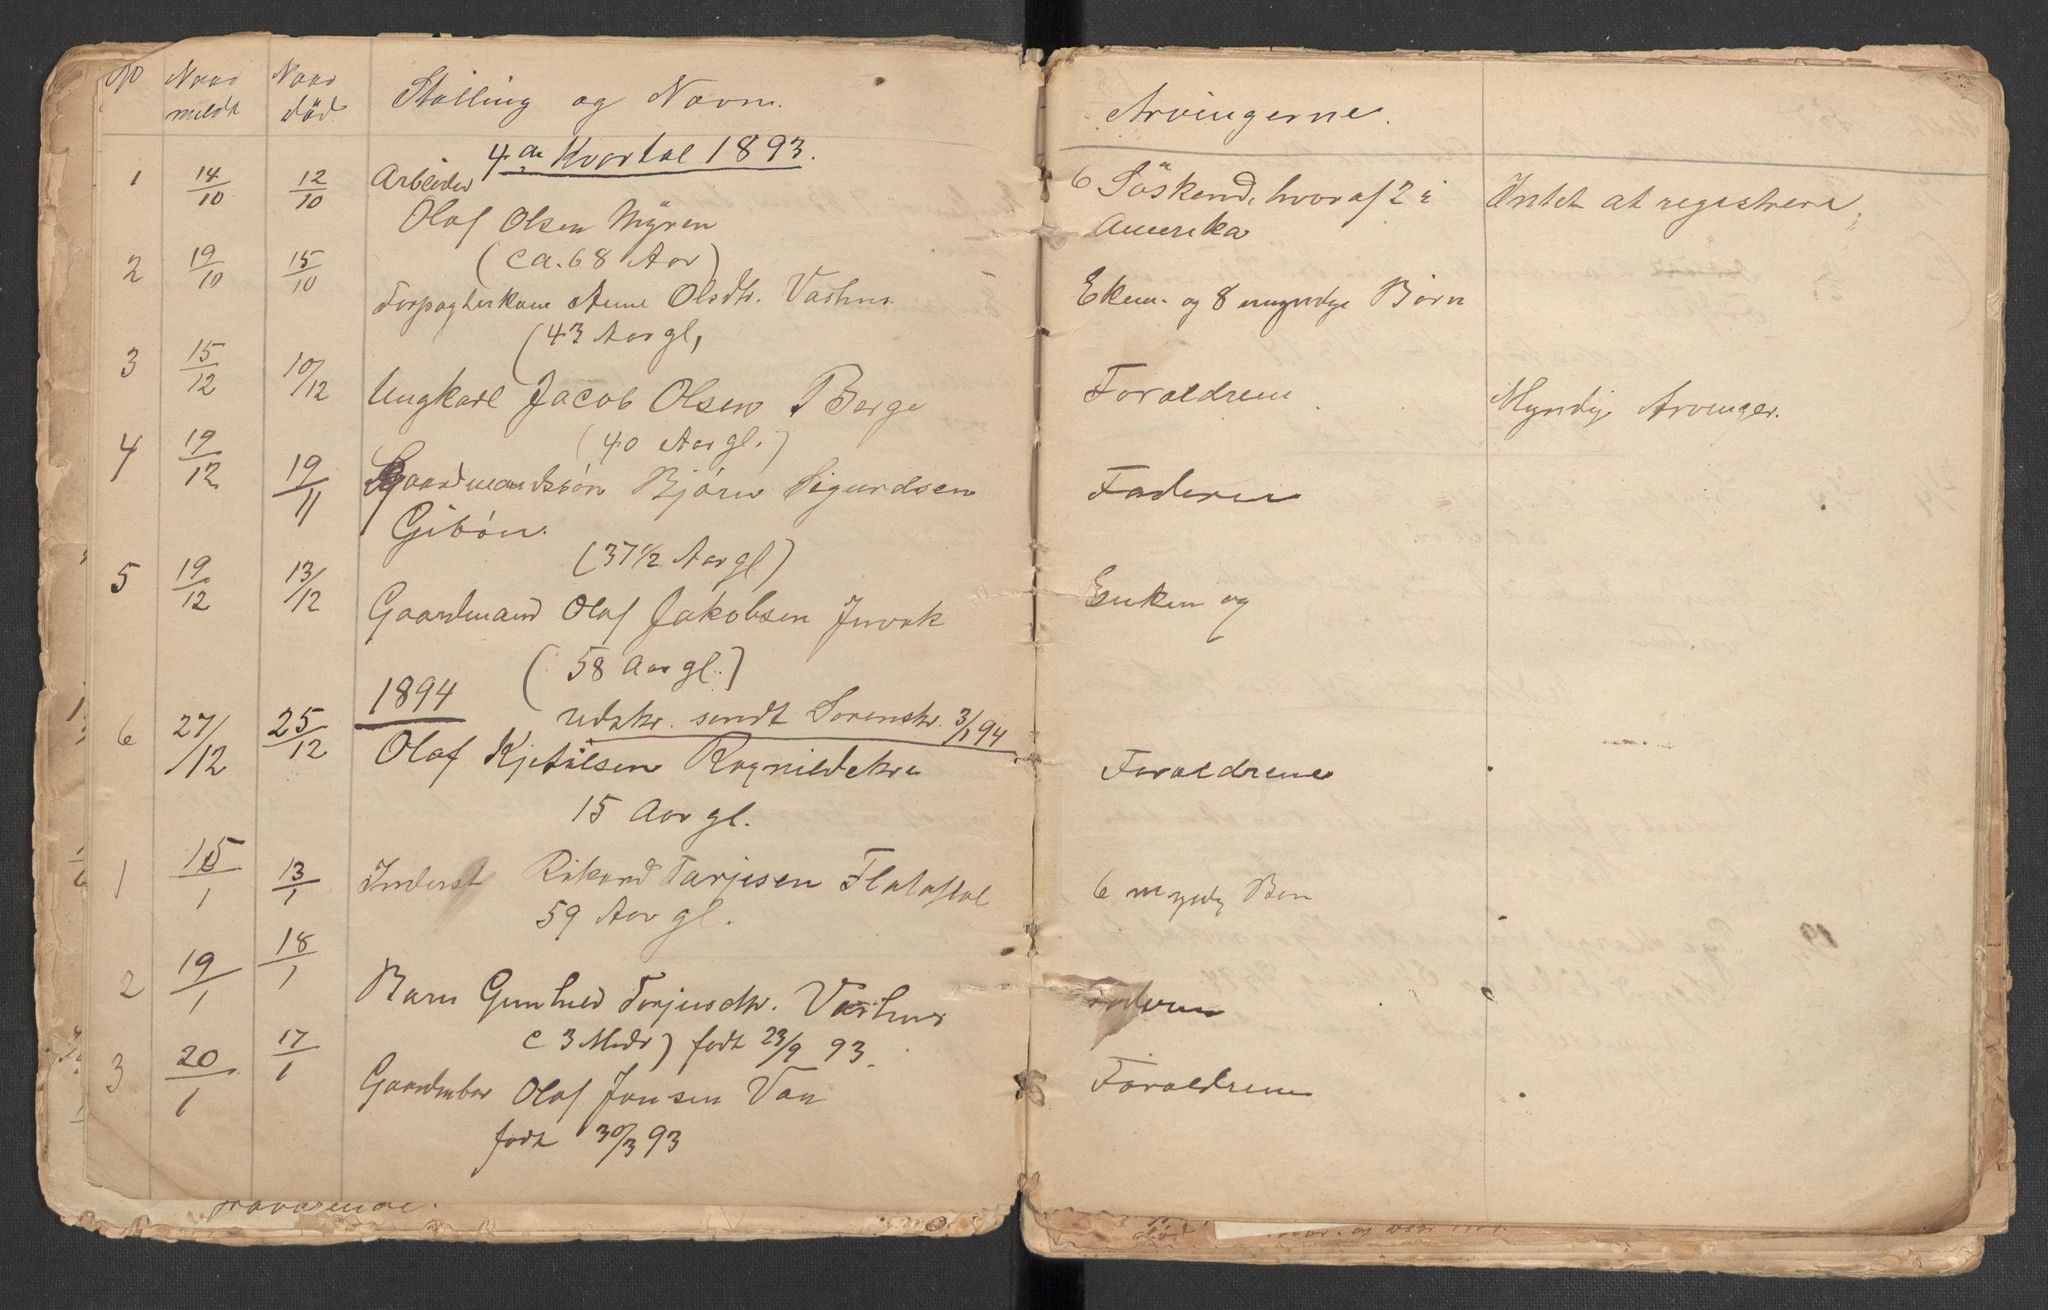 No Naar meldt Naar död Stilling og Navn. Arvingerne.
4de Kvartal 1893.
1 14/10 12/10 Arbeider 6 Söskend, hvoraf 2 i Intet at registrere
Olaf Olsen Myren Amerika
(ca. 68 Aar)
2 19/10 15/10 Forpagterkone Anne Olsdtr. Vashus Ekem. og 8 umyndge Børn
(43 Aar gl,
3 15/12 10/12 Ungkarl Jacob Olsen Berge Foraldrene Myndige Arvinger.
(40 Aar gl.)
4 19/12 19/11 Gaardmandssön Bjørn Sigurdsen Faderen
Gibøn.
(37 1/2 Aar gl)
5 19/12 13/12 Gaardmand Olaf Jakobsen Enken og
(58 Aar gl.)
1894
udskr. sendt Sorenskr. 3/1 94
6 27/12 25/12 Olaf Kjetilsen Foraldrene
15 Aar gl.
1 15/1 13/1 Inderst Rikard Tarjesen 6 myndg Børn
59 Aar gl.
2 19/1 18/1 Barn Gunhild Torjusdtr. Vashus
c 3 Mdr) födt 23/9 93.
3 20/1 17/1 Olaf Jonsen Foraldrene
födt 30/3 93